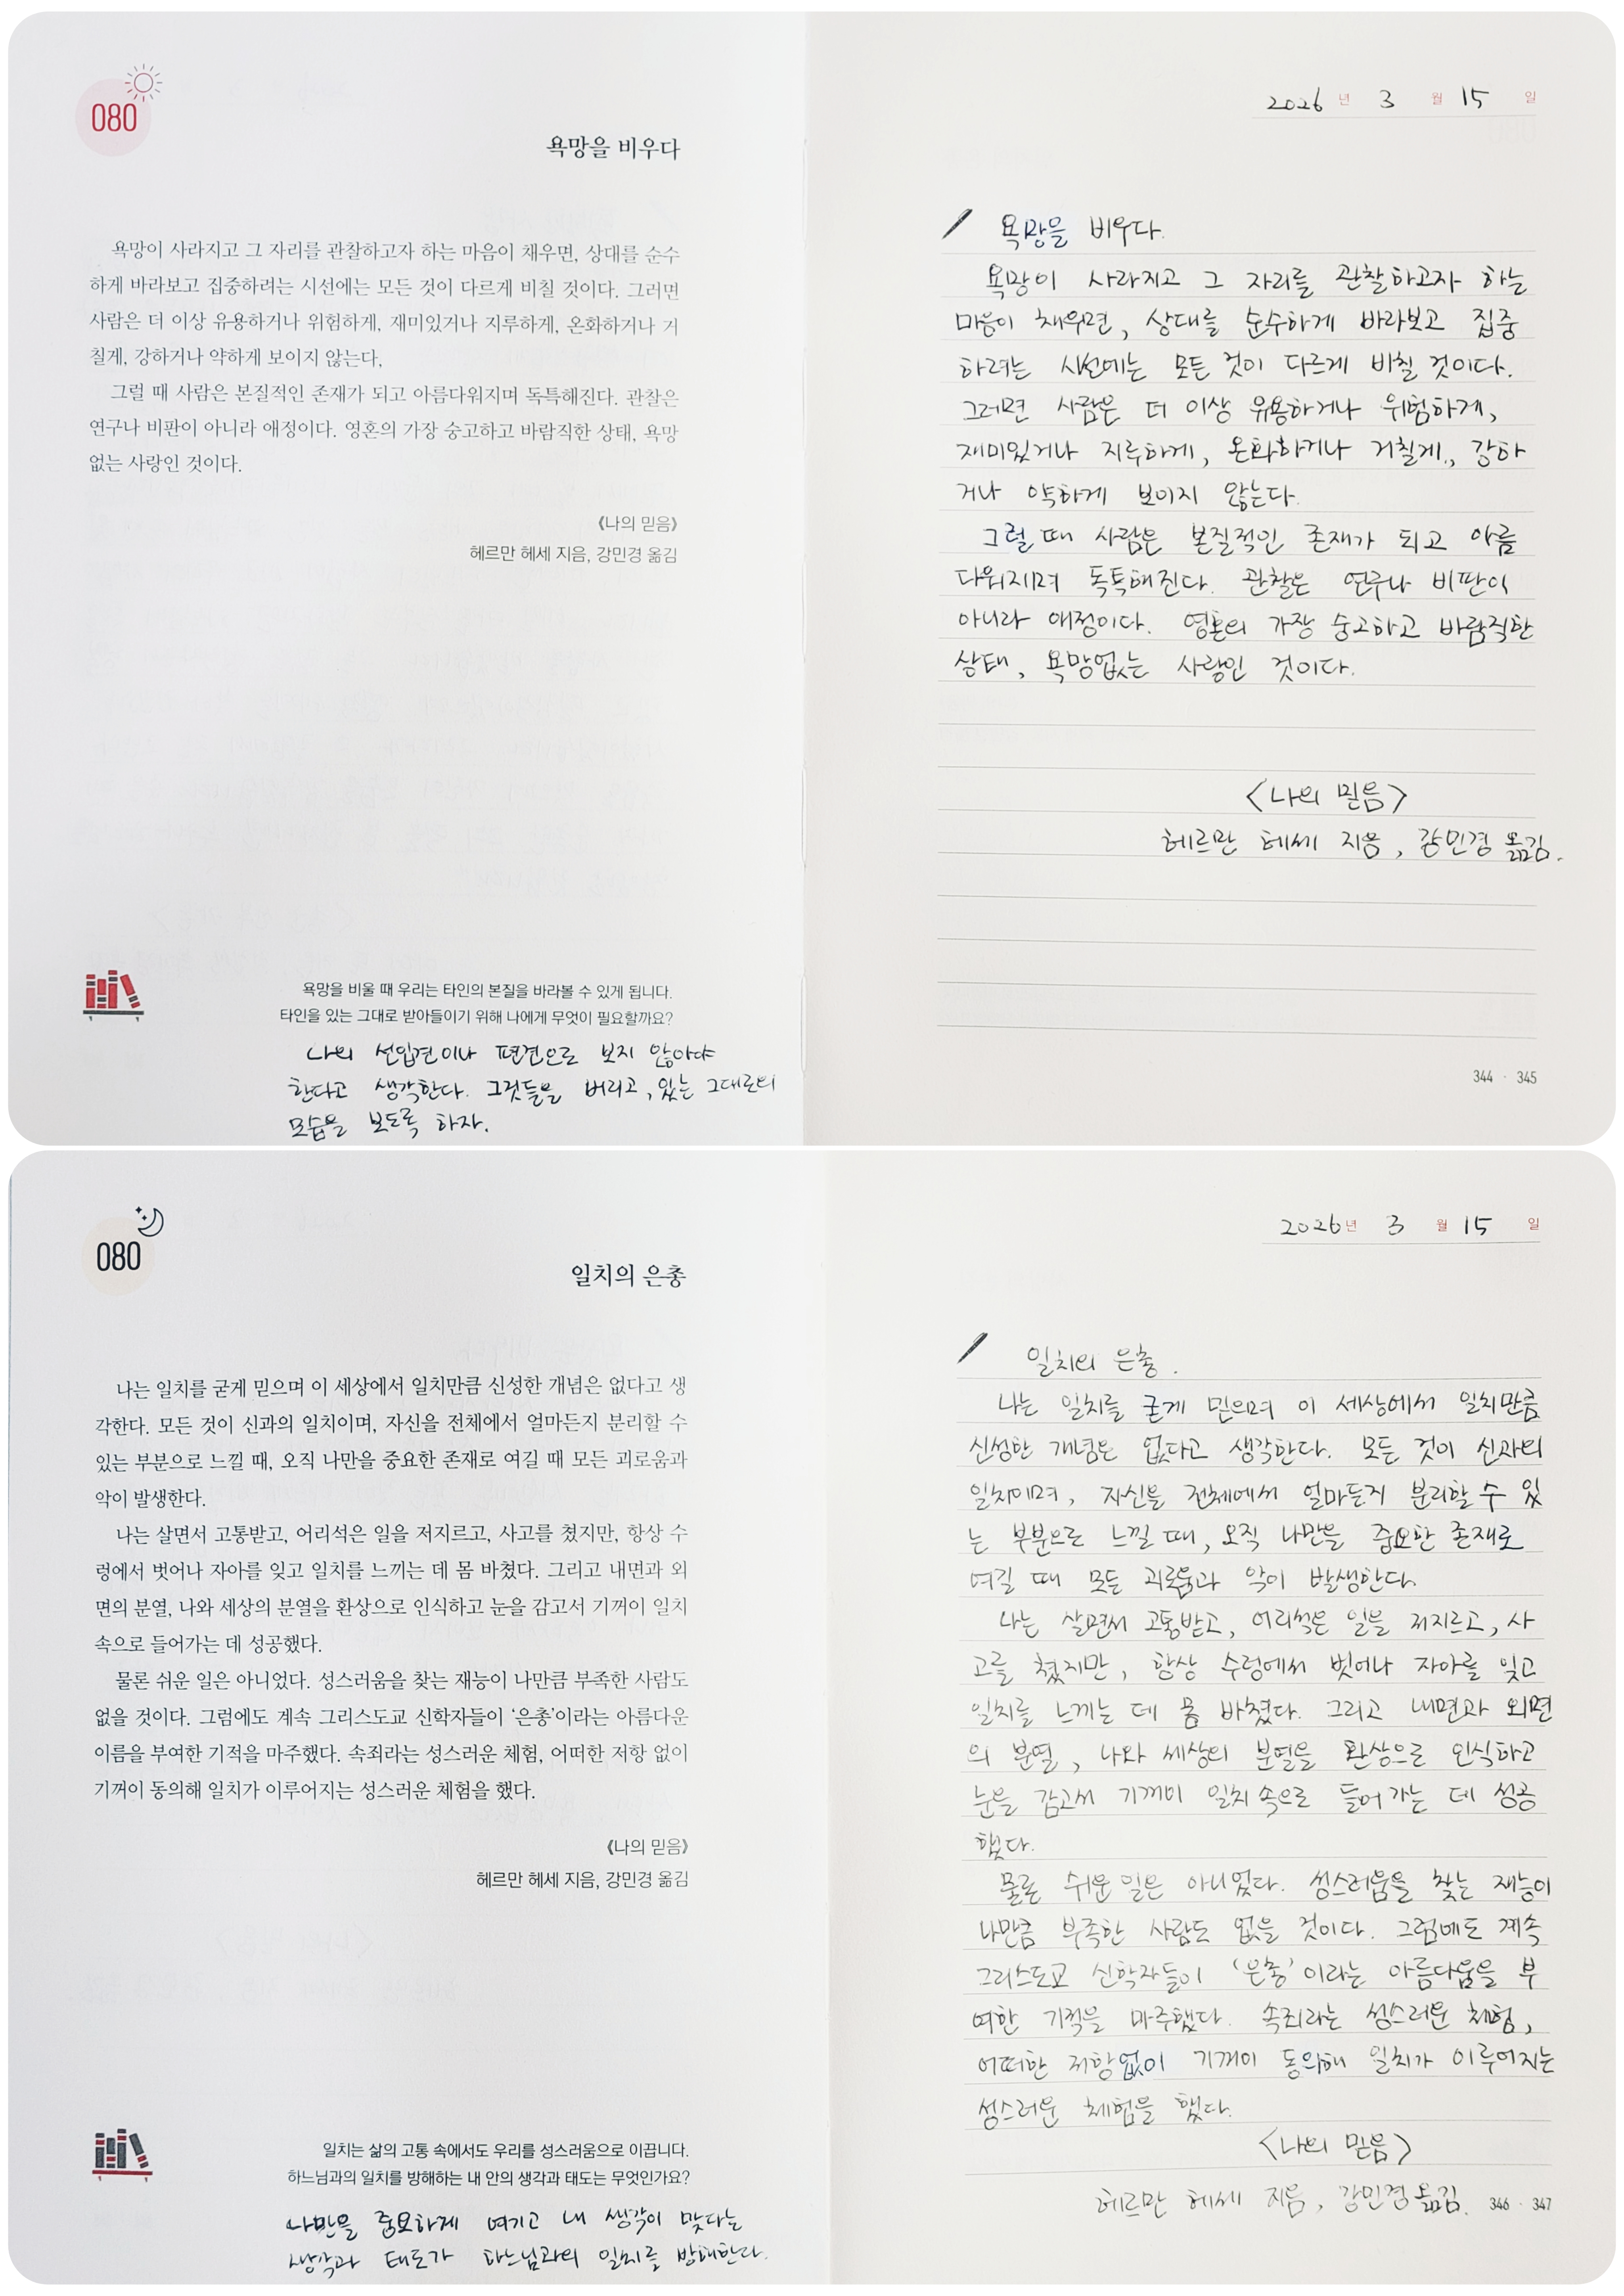 080
욕망을 비우다
욕망이 사라지고 그 자리를 관찰하고자 하는 마음이 채우면, 상대를 순수
하게 바라보고 집중하려는 시선에는 모든 것이 다르게 비칠 것이다. 그러면
사람은 더 이상 유용하거나 위험하게, 재미있거나 지루하게, 온화하거나 거
칠게, 강하거나 약하게 보이지 않는다.
그럴 때 사람은 본질적인 존재가 되고 아름다워지며 독특해진다. 관찰은
연구나 비판이 아니라 애정이다. 영혼의 가장 숭고하고 바람직한 상태, 욕망
없는 사랑인 것이다.
《나의 믿음》
헤르만 헤세 지음, 강민경 옮김
욕망을 비울 때 우리는 타인의 본질을 바라볼 수 있게 됩니다.
타인을 있는 그대로 받아들이기 위해 나에게 무엇이 필요할까요?
나의 선입견이나 편견으로 보지 않아야
한다고 생각한다. 그것들을 버리고, 있는 그대로의
모습을 보도록 하자.
2026 년 3 월 15 일
욕망을 비우다.
욕망이 사라지고 그 자리를 관찰하고자 하는
마음이 채우면, 상대를 순수하게 바라보고 집중
하려는 시선에는 모든 것이 다르게 비칠 것이다.
그러면 사람은 더 이상 유용하거나 위험하게,
재미있거나 지루하게, 온화하거나 거칠게, 강하
거나 약하게 보이지 않는다.
그럴 때 사람은 본질적인 존재가 되고 아름
다워지며 독특해진다. 관찰은 연구나 비판이
아니라 애정이다. 영혼의 가장 숭고하고 바람직한
상태, 욕망없는 사랑인 것이다.
<나의 믿음>
헤르만 헤세 지음, 강민경 옮김.
344 · 345
080
일치의 은총
나는 일치를 굳게 믿으며 이 세상에서 일치만큼 신성한 개념은 없다고 생
각한다. 모든 것이 신과의 일치이며, 자신을 전체에서 얼마든지 분리할 수
있는 부분으로 느낄 때, 오직 나만을 중요한 존재로 여길 때 모든 괴로움과
악이 발생한다.
나는 살면서 고통받고, 어리석은 일을 저지르고, 사고를 쳤지만, 항상 수
렁에서 벗어나 자아를 잊고 일치를 느끼는 데 몸 바쳤다. 그리고 내면과 외
면의 분열, 나와 세상의 분열을 환상으로 인식하고 눈을 감고서 기꺼이 일치
속으로 들어가는 데 성공했다.
물론 쉬운 일은 아니었다. 성스러움을 찾는 재능이 나만큼 부족한 사람도
없을 것이다. 그럼에도 계속 그리스도교 신학자들이 ‘은총’이라는 아름다운
이름을 부여한 기적을 마주했다. 속죄라는 성스러운 체험, 어떠한 저항 없이
기꺼이 동의해 일치가 이루어지는 성스러운 체험을 했다.
《나의 믿음》
헤르만 헤세 지음, 강민경 옮김
일치는 삶의 고통 속에서도 우리를 성스러움으로 이끕니다.
하느님과의 일치를 방해하는 내 안의 생각과 태도는 무엇인가요?
나만을 중요하게 여기고 내 생각이 맞다는
생각과 태도가 하느님과의 일치를 방해한다.
2026년 3 월 15 일
일치의 은총.
나는 일치를 굳게 믿으며 이 세상에서 일치만큼
신성한 개념은 없다고 생각한다. 모든 것이 신과의
일치이며, 자신을 전체에서 얼마든지 분리할 수 있
는 부분으로 느낄 때, 오직 나만을 중요한 존재로
여길 때 모든 괴로움과 악이 발생한다.
나는 살면서 고통받고, 어리석은 일을 저지르고, 사
고를 쳤지만, 항상 수렁에서 벗어나 자아를 잊고
일치를 느끼는 데 몸 바쳤다. 그리고 내면과 외면
의 분열, 나와 세상의 분열을 환상으로 인식하고
눈을 감고서 기꺼이 일치 속으로 들어가는 데 성공
했다.
물론 쉬운 일은 아니었다. 성스러움을 찾는 재능이
나만큼 부족한 사람도 없을 것이다. 그럼에도 계속
그리스도교 신학자들이 ‘은총’이라는 아름다움을 부
여한 기적을 마주했다. 속죄라는 성스러운 체험,
어떠한 저항없이 기꺼이 동의해 일치가 이루어지는
성스러운 체험을 했다.
<나의 믿음>
헤르만 헤세 지음, 강민경 옮김.
346 · 347